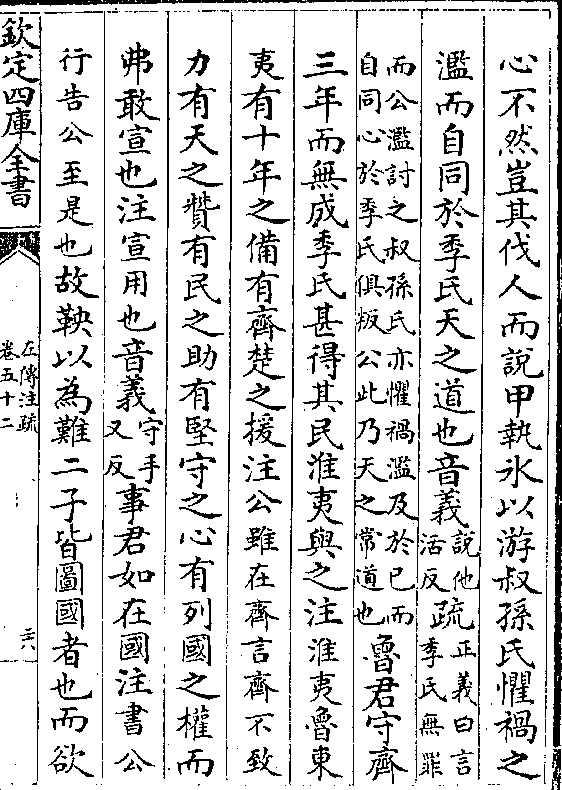 心不然豈其伐人而說甲執氷以游叔孫氏懼禍之
濫而自同於季氏天之道也音義說他活反疏正義曰言季氏無罪
而公濫討之叔孫氏亦懼禍濫及於已而
自同心於季氏俱叛公此乃天之常道也
魯君守齊
三年而無成季氏甚得其民淮夷與之注淮夷魯東
夷有十年之備有齊楚之援注公雖在齊言齊不致
力有天之贊有民之助有堅守之心有列國之權而
弗敢宣也注宣用也音義守手又反事君如在國注書公
行告公至是也故鞅以為難二子皆圖國者也而欲
欽定四庫全書
左傳注疏
卷五十二